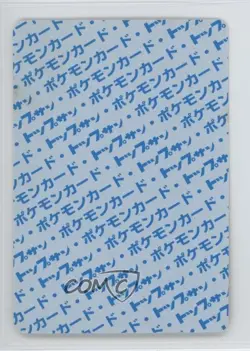 ポケモンカード・
トップサン・ポケモンカード・
ポケモンカード・トップサン・
トップサン・ポケモンカード・
ポケモンカード・トップサン・
トップサン・ポケモンカード・
ポケモンカード・トップサン・
トップサン・ポケモンカード・
ポケモンカード・トップサン・
COMC